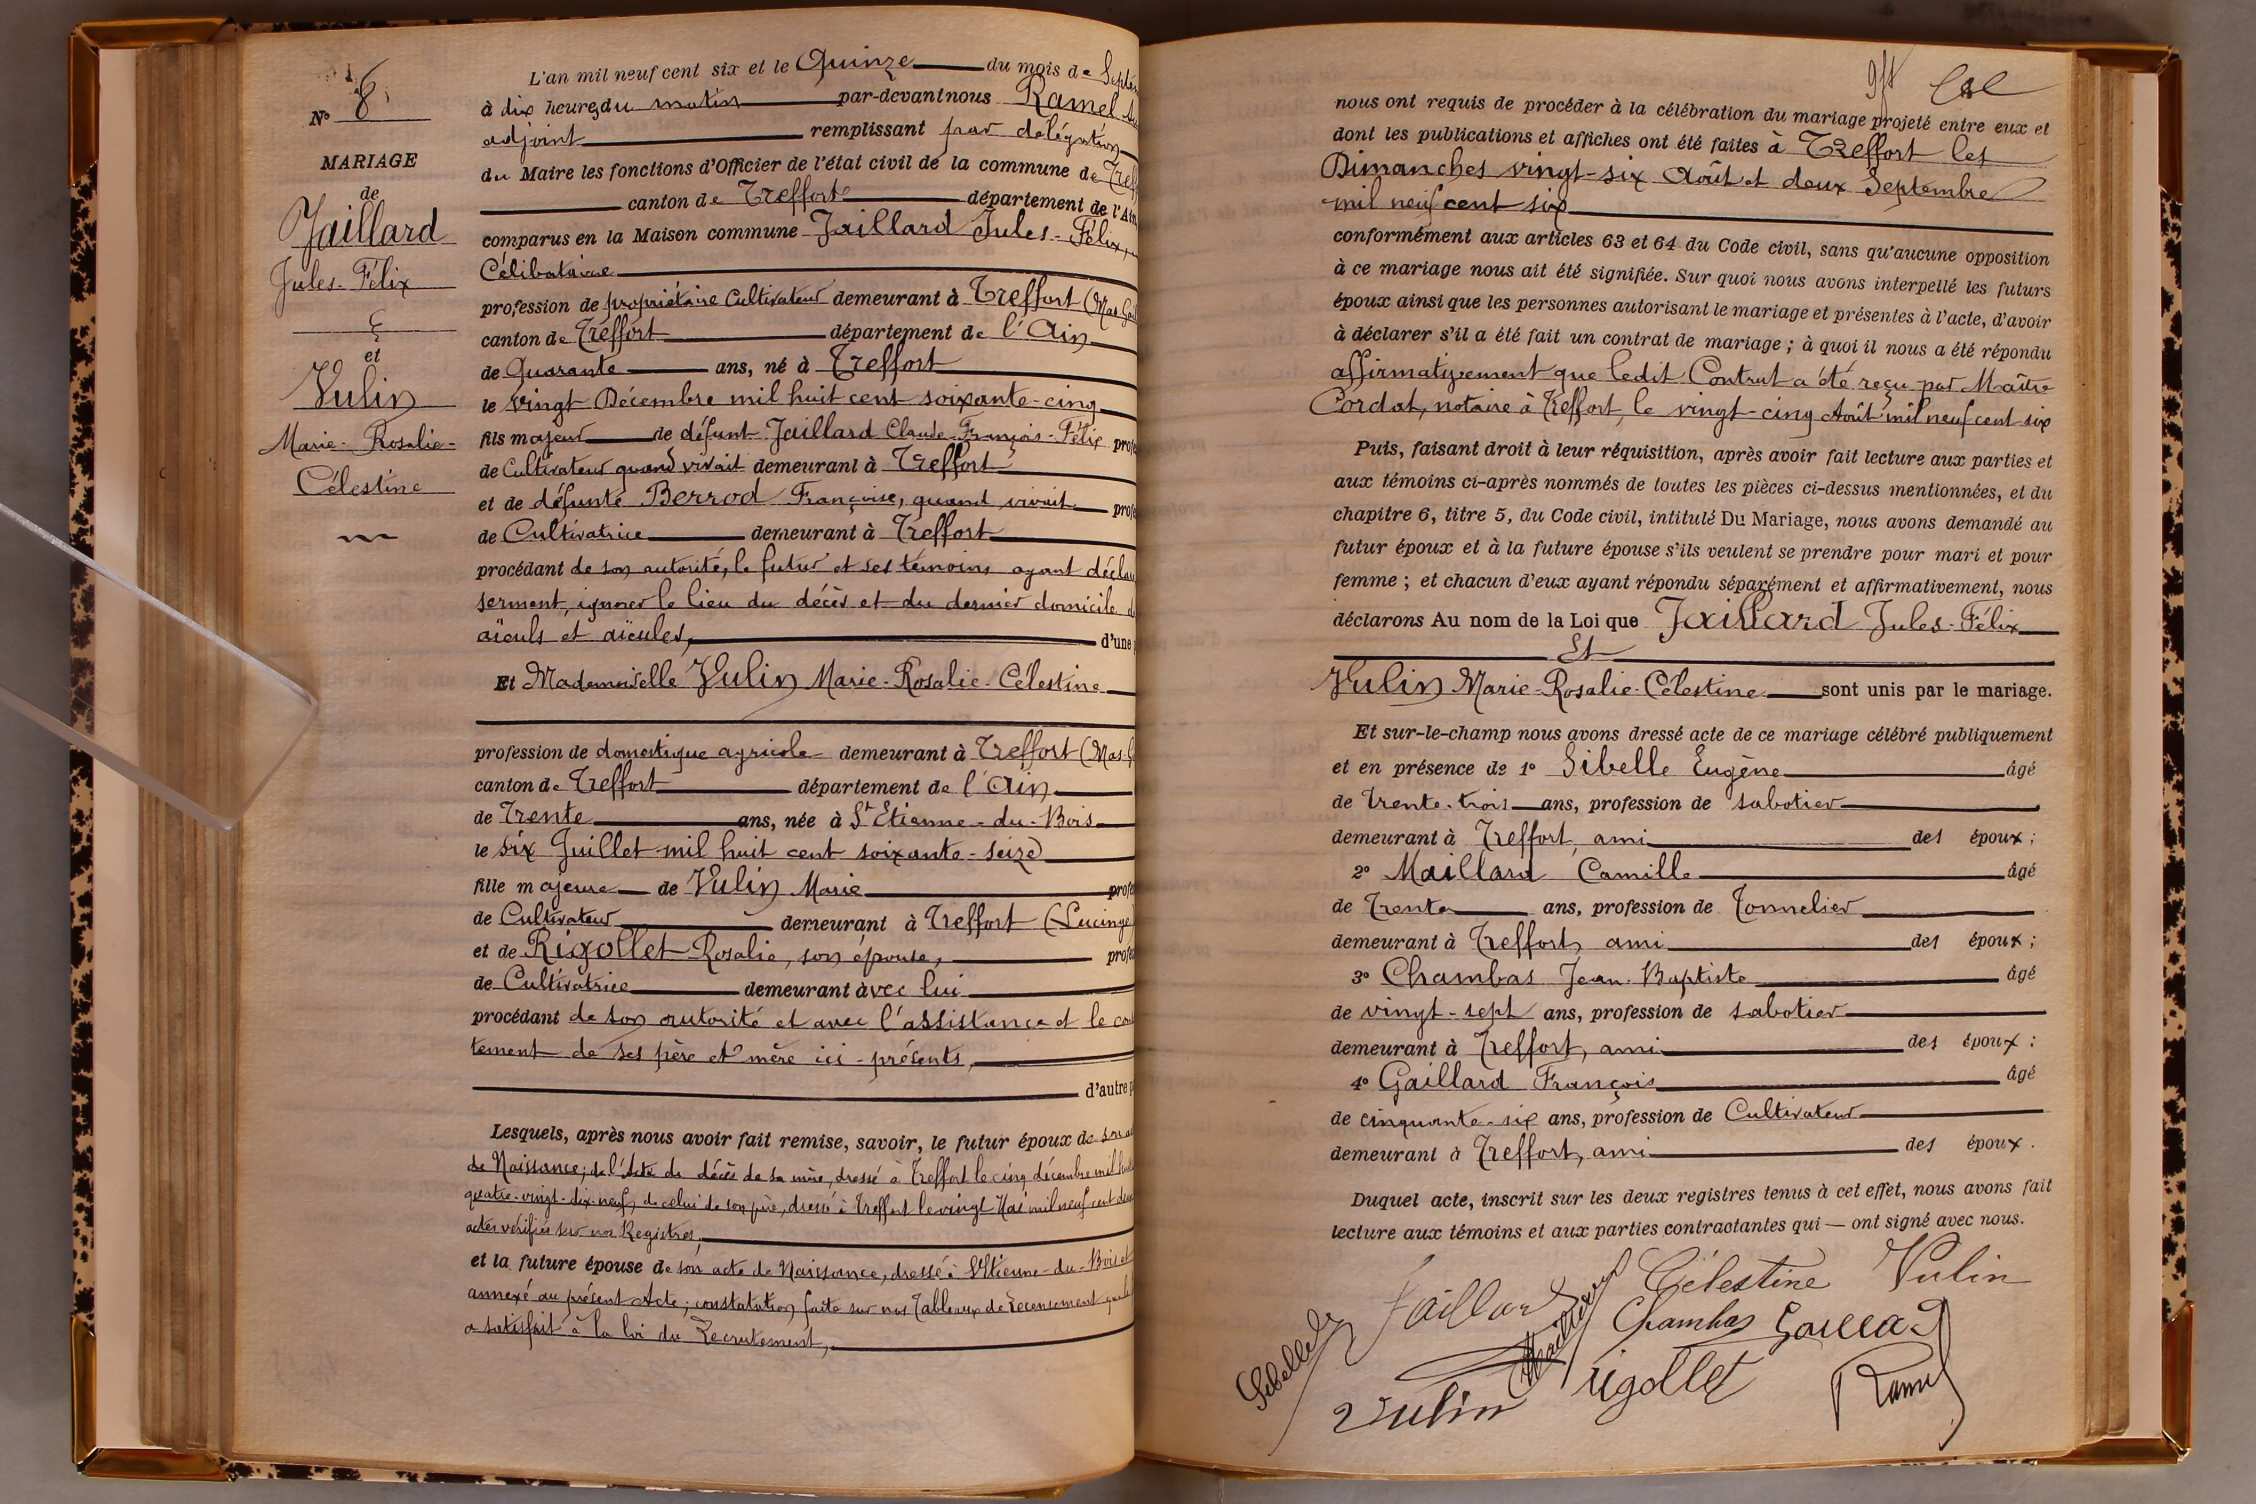 N° 8
MARIAGE
de
Jaillard
Jules-Félix
et
Vulin
Marie-Rosalie-
Célestine
L'an mil neuf cent six et le Quinze du mois de Septem
à dix heures du matin par-devant nous Ramel
adjoint remplissant par délégation
du Maire les fonctions d'Officier de l'état civil de la commune de Treff
canton de Treffort département de l'Ain
comparus en la Maison commune Jaillard Jules-Félix,
Célibataire
profession de propriétaire Cultivateur demeurant à Treffort (Mas
canton de Treffort département de l'Ain
de Quarante ans, né à Treffort
le vingt Décembre mil huit cent soixante-cinq
fils majeur de défunt Jaillard Claude-François-Félix profe
de Cultivateur quand vivait demeurant à Treffort
et de défunte Berrod Françoise, quand vivait profe
de Cultivatrice demeurant à Treffort
procédant de son autorité, le futur et ses témoins ayant déclaré
serment, ignorer le lieu du décès et du dernier domicile de
aïeuls et aïeules, d'une
Et Mademoiselle Vulin Marie-Rosalie-Célestine
profession de domestique agricole demeurant à Treffort (Mas
canton de Treffort département de l'Ain
de Trente ans, née à St Etienne-du-Bois
le six Juillet mil huit cent soixante-seize
fille majeure de Vulin Marie profe
de Cultivateur demeurant à Treffort (Lucinge)
et de Rigollet Rosalie, son épouse, profe
de Cultivatrice demeurant avec lui
procédant de son autorité et avec l'assistance et le con
tement de ses père et mère ici-présents,
d'autre p
Lesquels, après nous avoir fait remise, savoir, le futur époux de son a
de Naissance; de l'Acte de décès de sa mère, dressé à Treffort le cinq décembre mil huit
quatre-vingt-dix-neuf, de celui de son père, dressé à Treffort le vingt Mai mil neuf cent deux
actes vérifiés sur nos Registres,
et la future épouse de son acte de Naissance, dressé à St Etienne-du-Bois et
annexé au présent Acte; constatation faite sur nos Tableaux de recensement que le
a satisfait à la loi du Recrutement,
nous ont requis de procéder à la célébration du mariage projeté entre eux et
dont les publications et affiches ont été faites à Treffort les
Dimanches vingt-six Août et deux Septembre
mil neuf cent six
conformément aux articles 63 et 64 du Code civil, sans qu'aucune opposition
à ce mariage nous ait été signifiée. Sur quoi nous avons interpellé les futurs
époux ainsi que les personnes autorisant le mariage et présentes à l'acte, d'avoir
à déclarer s'il a été fait un contrat de mariage ; à quoi il nous a été répondu
affirmativement que ledit Contrat a été reçu par Maître
Cordat, notaire à Treffort, le vingt-cinq Août mil neuf cent six
Puis, faisant droit à leur réquisition, après avoir fait lecture aux parties et
aux témoins ci-après nommés de toutes les pièces ci-dessus mentionnées, et du
chapitre 6, titre 5, du Code civil, intitulé Du Mariage, nous avons demandé au
futur époux et à la future épouse s'ils veulent se prendre pour mari et pour
femme ; et chacun d'eux ayant répondu séparément et affirmativement, nous
déclarons Au nom de la Loi que Jaillard Jules-Félix
Et
Vulin Marie-Rosalie-Célestine sont unis par le mariage.
Et sur-le-champ nous avons dressé acte de ce mariage célébré publiquement
et en présence de 1° Sibelle Eugène âgé
de trente-trois ans, profession de sabotier
demeurant à Treffort, ami des époux ;
2° Maillard Camille âgé
de Trente ans, profession de Tonnelier
demeurant à Treffort, ami des époux ;
3° Chambas Jean-Baptiste âgé
de vingt-sept ans, profession de sabotier
demeurant à Treffort, ami des époux :
4° Gaillard François âgé
de cinquante-six ans, profession de Cultivateur
demeurant à Treffort, ami des époux.
Duquel acte, inscrit sur les deux registres tenus à cet effet, nous avons fait
lecture aux témoins et aux parties contractantes qui — ont signé avec nous.
Jaillard Célestine Vulin
Sibelle Maillard Chambas Gaillard
Vulin Rigollet Ramel